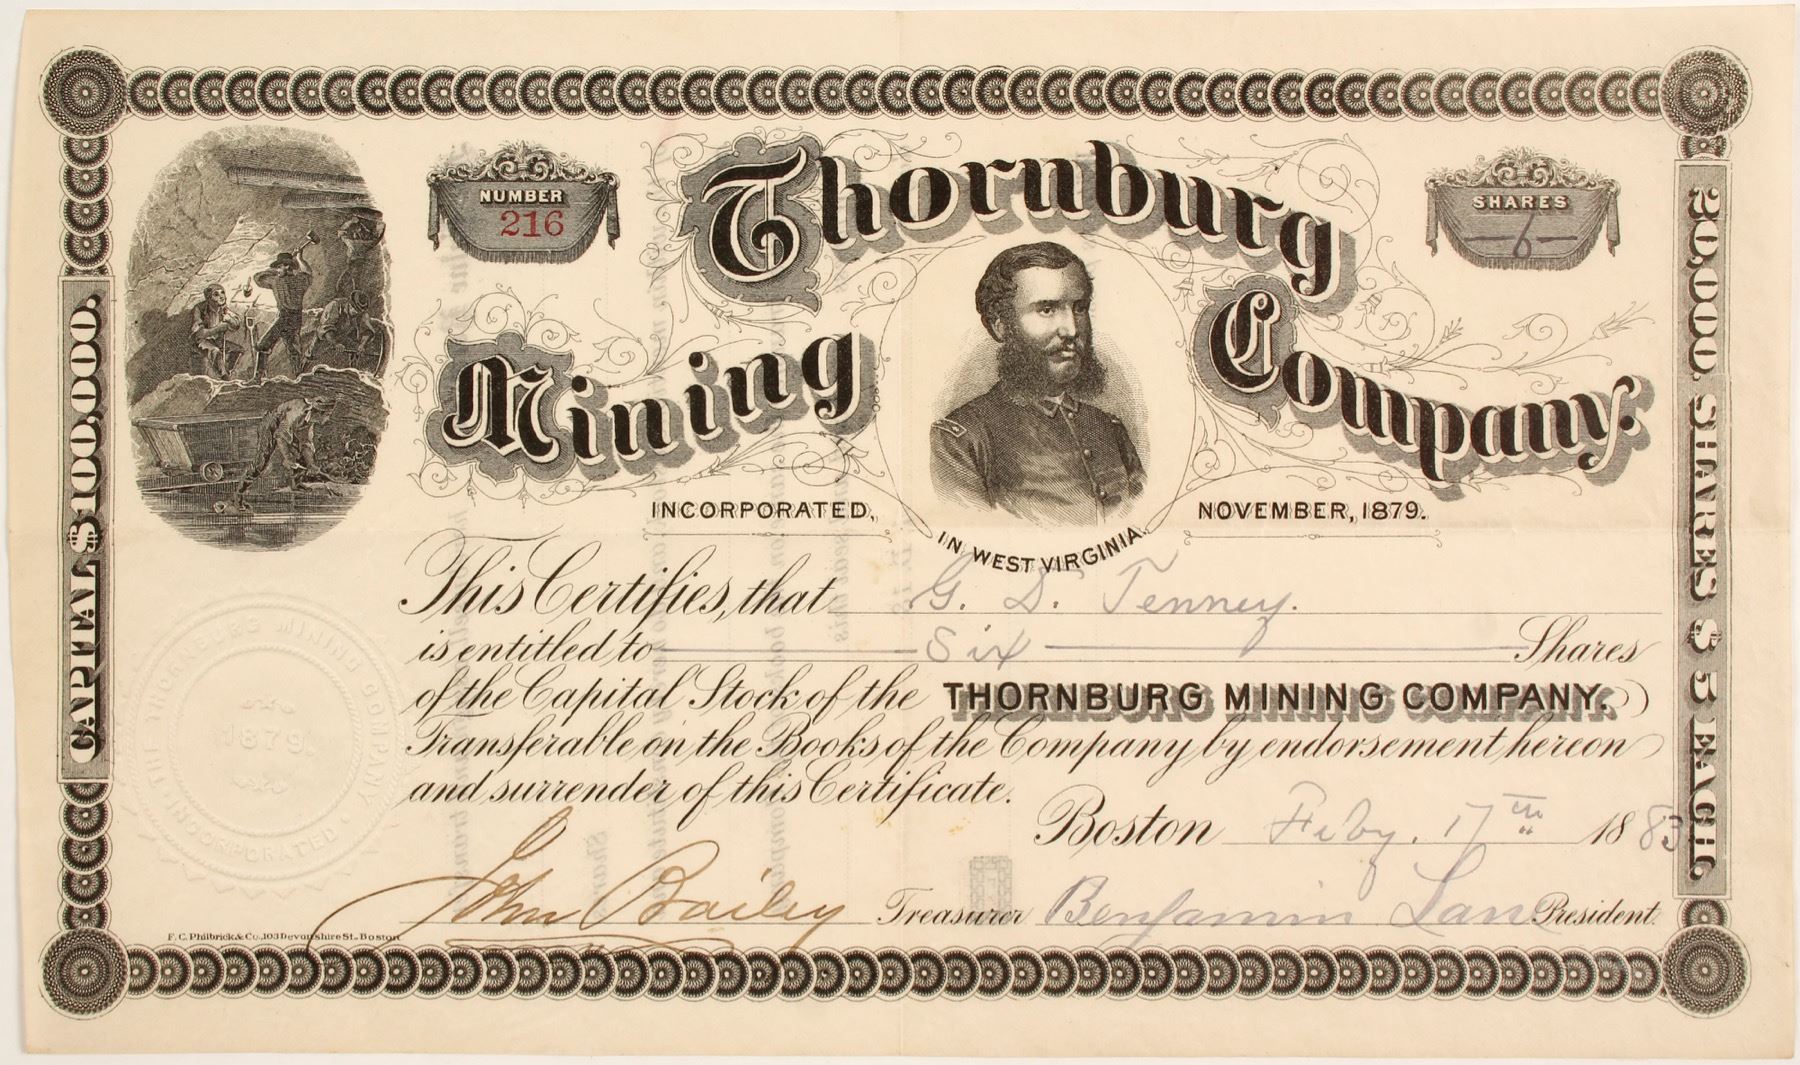 NUMBER
216
SHARES
6
Thornburg
Mining Company.
INCORPORATED, NOVEMBER, 1879.
IN WEST VIRGINIA.
CAPITAL $100,000.
20,000. SHARES $5 EACH.
This Certifies, that G. D. Tenney.
is entitled to Six Shares
of the Capital Stock of the THORNBURG MINING COMPANY.
Transferable on the Books of the Company by endorsement hereon
and surrender of this Certificate.
Boston Feby. 17th 1883
John Bailey Treasurer Benjamin Lane President.
THE THORNBURG MINING COMPANY
1879.
INCORPORATED
F.C. Philbrick & Co., 103 Devonshire St. Boston